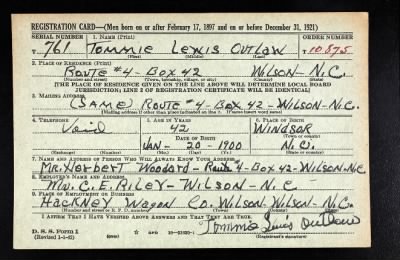 REGISTRATION CARD—(Men born on or after February 17, 1897 and on or before December 31, 1921)
SERIAL NUMBER 1. NAME (Print) ORDER NUMBER
T 761 Tommie Lewis Outlaw T 10875
(First) (Middle) (Last)
2. PLACE OF RESIDENCE (Print)
Route #4-Box 42 Wilson-N.C.
(Number and street) (Town, township, village, or city) (County) (State)
[THE PLACE OF RESIDENCE GIVEN ON THE LINE ABOVE WILL DETERMINE LOCAL BOARD
JURISDICTION; LINE 2 OF REGISTRATION CERTIFICATE WILL BE IDENTICAL]
3. MAILING ADDRESS
(SAME) Route #4-Box 42-Wilson-N.C.
[Mailing address if other than place indicated on line 2. If same insert word same]
4. TELEPHONE 5. AGE IN YEARS 6. PLACE OF BIRTH
42 Windsor
DATE OF BIRTH (Town or county)
Jan- 20-1900 N.C.
(Exchange) (Number) (Mo.) (Day) (Yr.) (State or country)
7. NAME AND ADDRESS OF PERSON WHO WILL ALWAYS KNOW YOUR ADDRESS
Mr. Herbert Woodard-Route #4-Box 42-Wilson-N.C
8. EMPLOYER'S NAME AND ADDRESS
Mr. C.E. Riley-Wilson-N.C
9. PLACE OF EMPLOYMENT OR BUSINESS
Hackney Wagon Co. Wilson-Wilson-N.C.
(Number and street or R. F. D. number) (Town) (County) (State)
I AFFIRM THAT I HAVE VERIFIED ABOVE ANSWERS AND THAT THEY ARE TRUE.
D. S. S. Form 1 Tommie Outlaw
(Revised 1-1-42) (over) (Registrant's signature)